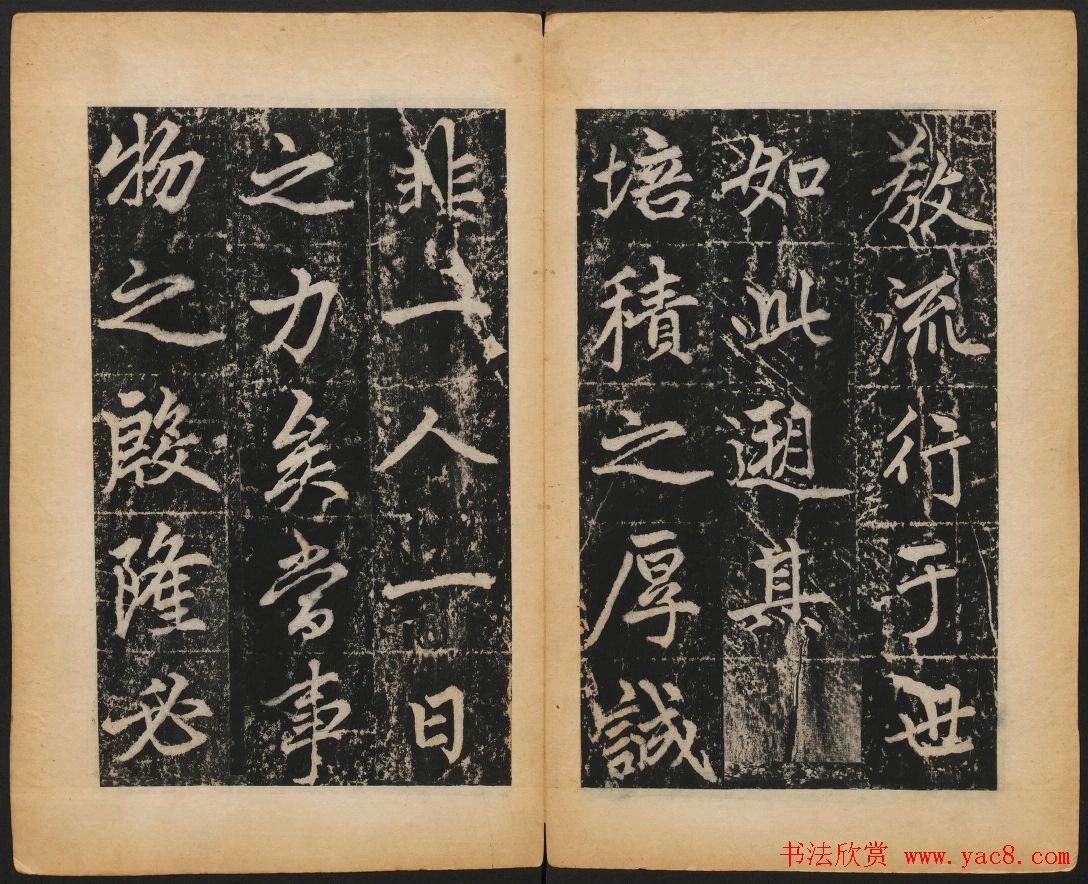 教流行于世
如此遡其
培積之厚誠
非一人一日
之力矣當事
物之殷隆必
书法欣赏 www.yac8.com